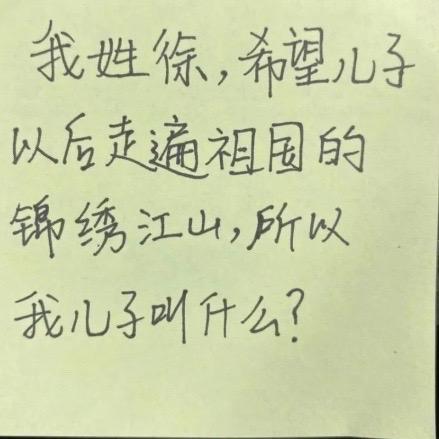 我姓徐,希望儿子
以后走遍祖国的
锦绣江山,所以
我儿子叫什么?